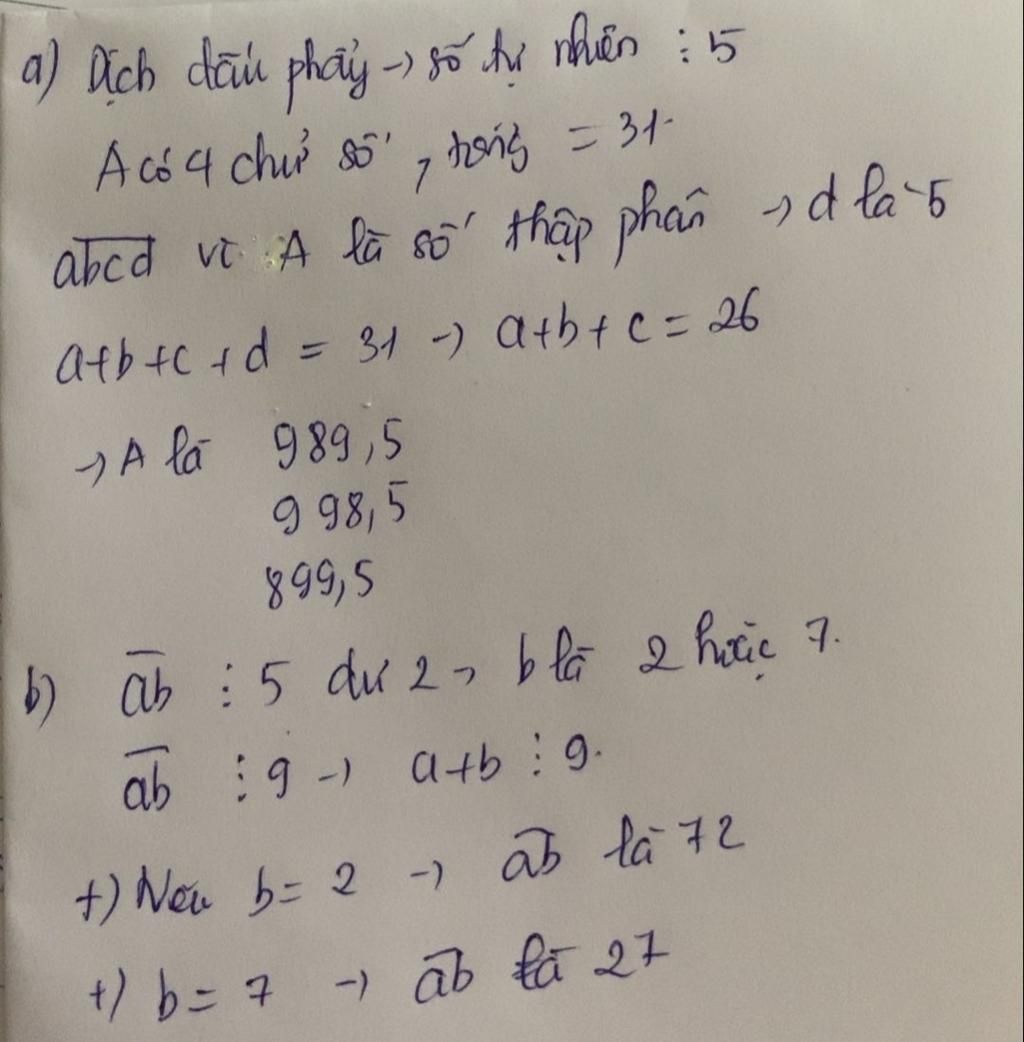 a) Dịch dấu phẩy → số tự nhiên ⋮ 5
A có 4 chữ số, tổng = 31.
abcd vì A là số thập phân → d là 5
a+b+c+d = 31 → a+b+c = 26
→ A là 989,5
998,5
899,5
b) ab ⋮ 5 dư 2 → b là 2 hoặc 7.
ab ⋮ 9 → a+b ⋮ 9.
+) Nếu b = 2 → ab là 72
+) b = 7 → ab là 27